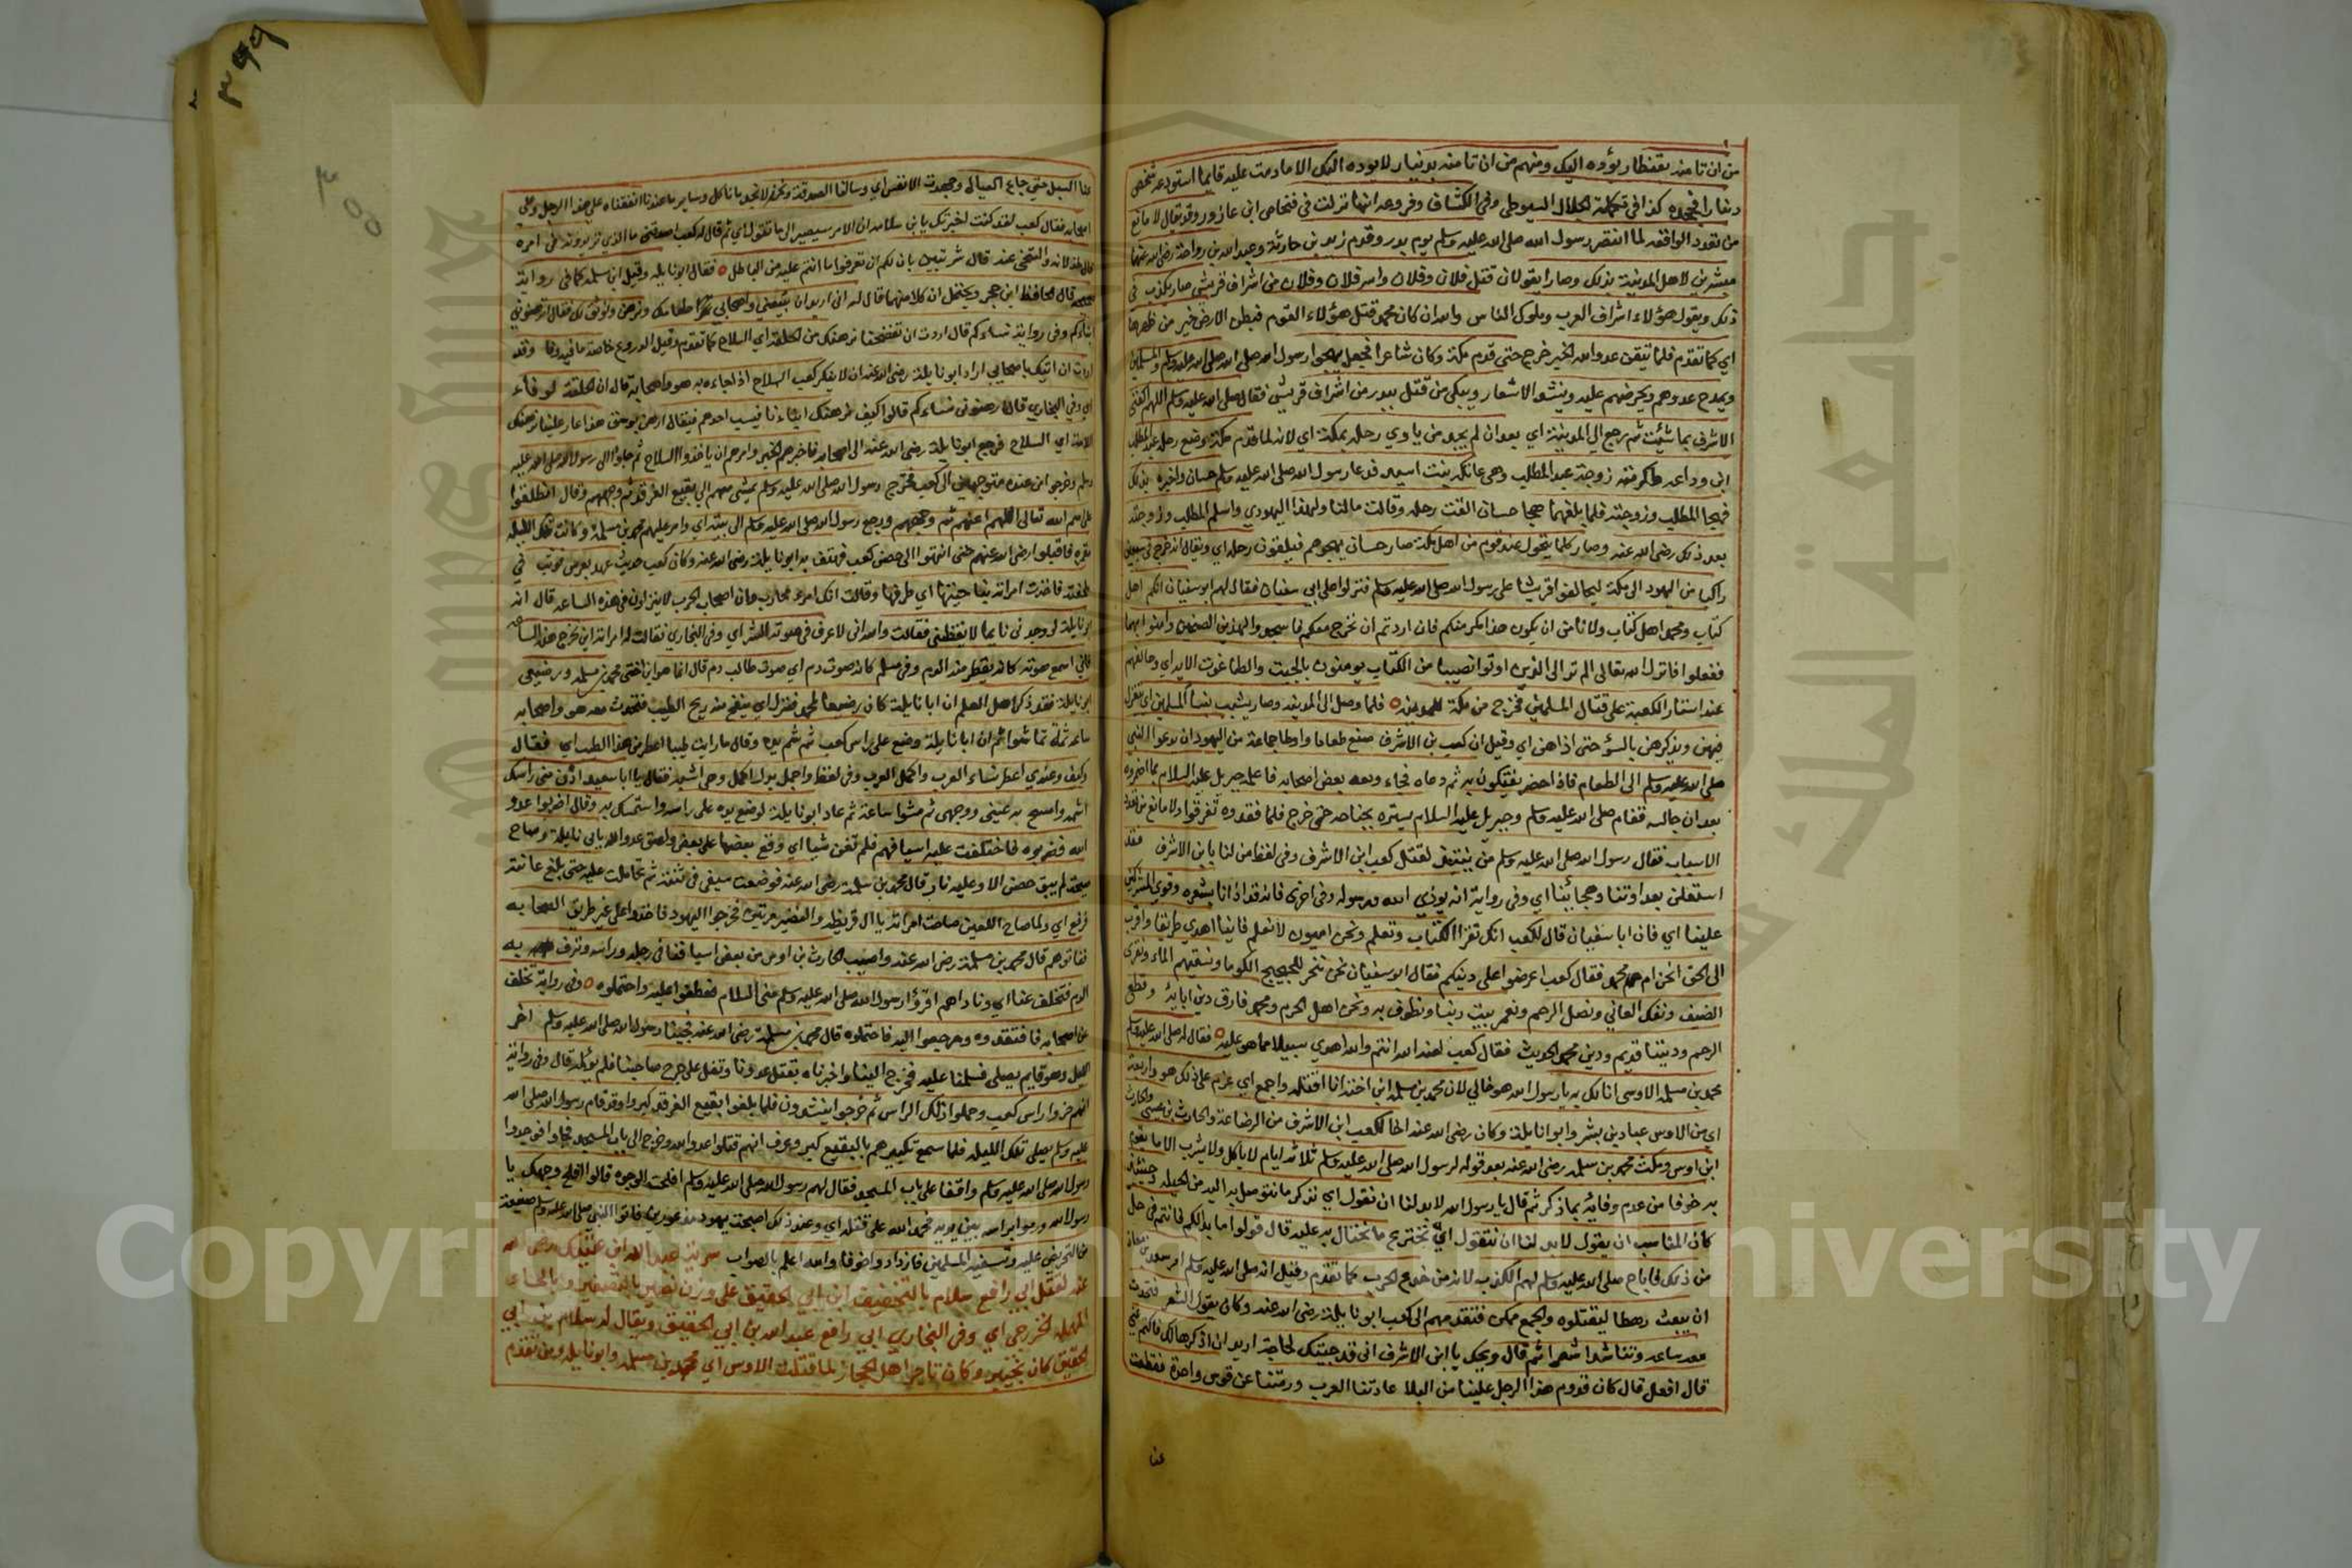 من ان تامنه بقنطار يؤده اليك ومنهم من ان تامنه بدينار لا يوده اليك الا ما دمت عليه قايما استودعه شخص
دينارا فجحده كذا في تكملة الجلال السيوطي وفي الكشاف وفروعه انها نزلت في فنحاص ابن عازورا وقد يقال لا مانع
من تعدد الواقعه لما انتصر رسول الله صلى الله عليه وسلم يوم بدر وقدم زيد بن حارثة وعبد الله بن رواحة رضي الله عنهما
مبشرين لاهل المدينة بذلك وصارا يقولان قتل فلان وفلان واسر فلان وفلان من اشراف قريش صار يكذب في
ذلك ويقول هؤلاء اشراف العرب وملوك الناس والله ان كان محمد قتل هؤلاء القوم فبطن الارض خير من ظهرها
اي كما تقدم فلما تيقن عدو الله الخبر خرج حتى قدم مكة وكان شاعرا فجعل يهجو رسول الله صلى الله عليه وسلم والمسلمين
ويمدح عدوهم ويحرضهم عليه وينشد الاشعار ويبكي من قتل ببدر من اشراف قريش فقال صلى الله عليه وسلم اللهم اكفني ابن
الاشرف بما شئت ثم رجع الى المدينة اي بعد ان لم يجد من ياوي رحله بمكة اي لانه لما قدم مكة وضع رحله عند المطلب
ابن وداعه فاكرمته زوجة عبد المطلب وهي عاتكة بنت اسيد فدعا رسول الله صلى الله عليه وسلم حسان واخبره بذلك
فهجا المطلب وزوجته فلما بلغهما هجا حسان القت رحله وقالت مالنا ولهذا اليهودي واسلم المطلب وزوجته
بعد ذلك رضي الله عنه وصار كلما يتحول عند قوم من اهل مكة صار حسان يهجوهم فيلقون رحله اي ويقال انه خرج في سبعين
راكبا من اليهود الى مكة ليحالفوا قريشا على رسول الله صلى الله عليه وسلم فنزلوا على ابي سفيان فقال لهم ابو سفيان انكم اهل
كتاب ومحمد اهل كتاب ولا نامن ان يكون هذا مكر منكم فان اردتم ان نخرج معكم فاسجدوا لهذين الصنمين وامنوا بهما
ففعلوا فانزل الله تعالى الم تر الى الذين اوتوا نصيبا من الكتاب يومنون بالجبت والطاغوت الايه اي وحالفهم
عند استار الكعبة على قتال المسلمين فخرج من مكة للمدينة فلما وصل الى المدينه وصار يشبب بنسا المسلمين اي يتغزل
فيهن ويذكرهن بالسؤ حتى اذاهن اي وقيل ان كعب بن الاشرف صنع طعاما واوطا جماعة من اليهود ان يدعوا النبي
صلى الله عليه وسلم الى الطعام فاذا حضر يفتكون به ثم دعاه فجاء ومعه بعض اصحابه فاعلمه جبريل عليه السلام بما اضمروه
بعد ان جالسه فقام صلى الله عليه وسلم وجبريل عليه السلام يستره بجناحه حتى خرج فلما فقدوه تفرقوا ولا مانع من تعدد
الاسباب فقال رسول الله صلى الله عليه وسلم من ينتدب لقتل كعب ابن الاشرف وفي لفظ من لنا بابن الاشرف فقد
استعلن بعداوتنا وهجائنا اي وفي رواية انه يوذي الله ورسوله وفي اخرى فانه قد اذانا بشعره وقوي المشركين
علينا اي فان ابا سفيان قال لكعب انك تقرا الكتاب وتعلم ونحن اميون لا نعلم فاينا اهدي طريقا واقرب
الى الحق انحن ام محمد فقال كعب اعرضوا علي دينكم فقال ابو سفيان نحن ننحر للحجيج الكوما ونسقيهم الماء ونقري
الضيف ونفك العاني ونصل الرحم ونعمر بيت ربنا ونطوف به ونحن اهل الحرم ومحمد فارق دين ابائه وقطع
الرحم وديننا قديم ودين محمد الحديث فقال كعب لعنه الله انتم والله اهدي سبيلا مما هو عليه فقال له صلى الله عليه وسلم
محمد بن مسلمة الاوسي انا لك به يا رسول الله هو خالي لان محمد بن مسلمة ابن اخته انا اقتله واجمع اي عزم على ذلك هو واربعة
اي من الاوس عباد بن بشر وابو نايلة وكان رضي الله عنه اخا لكعب ابن الاشرف من الرضاعة والحارث بن عيسى والحارث
ابن اوس ومكث محمد بن مسلمة رضي الله عنه بعد قوله لرسول الله صلى الله عليه وسلم ثلاثة ايام لا ياكل ولا يشرب الا ما يقوم
به خوفا من عدم وفائه بما ذكر ثم قال يا رسول الله لا بد لنا ان نقول اي نذكر ما نتوصل به اليه من الحيلة وحينئذ
كان المناسب ان يقول لا بد لنا ان نتقول اي نخترع ما نحتال به عليه قال قولوا ما بدا لكم فانتم في حل
من ذلك فاباح صلى الله عليه وسلم لهم الكذب لانه من خدع الحرب كما تقدم وقيل انه صلى الله عليه وسلم امر سعد بن معاذ
ان يبعث رهطا ليقتلوه والجمع ممكن فتقدمهم الى كعب ابو نايلة رضي الله عنه وكان يقول الشعر فتحدث
معه ساعه وتناشدا شعرا ثم قال ويحك يا ابن الاشرف اني قد جيتك لحاجة اريد ان اذكرها لك فاكتم عني
قال افعل قال كان قدوم هذا الرجل علينا من البلا عادتنا العرب ورمتنا عن قوس واحدة فقطعت
عنا
عنا السبل حتي جاع العيال وجهدت الانفس اي وسالنا الصدقة ونحن لا نجد ما ناكل وساير ما عندنا انفقناه على هذا الرجل وعلى
اصحابه فقال كعب لقد كنت اخبرتك يا ابن سلامه ان الامر سيصير الى ما تقول اي ثم قال له كعب اصدقني ما الذي تريدون في امره
قال خذلانه والتنحي عنه قال سرتني الم يان لكم ان تعرفوا ما انتم عليه من الباطل فقال ابو نايلة وقيل ابن مسلمة كما في رواية
صحيحة قال الحافظ ابن حجر ويحتمل ان كلا منهما قال له اني اريد ان تبيعني واصحابي طعامك ونرهن ونوثق لك فقال اترهنوني
ابناءكم وفي رواية نساءكم قال اردت ان تفضحنا نرهنك من الحلقة اي السلاح كما تقدم وقيل الدروع خاصة ما فيه وفا وقد
اردت ان اتيك باصحابي اراد ابو نايلة رضي الله عنه ان لا ينكر كعب السلاح اذا جاءه به هو واصحابه قال ان الحلقة لوفاء
اي وفي البخاري قال ارهنوني نساءكم قالوا كيف نرهنك ابناءنا فيسب احدهم فيقال ارهن بوسق هذا عار علينا نرهنك
اللامة اي السلاح فرجع ابو نايلة رضي الله عنه الى اصحابه فاخبرهم الخبر وامرهم ان ياخذوا السلاح ثم جاوا الى رسول الله صلى الله عليه
وسلم وخرجوا من عنده متوجهين الى كعب فخرج رسول الله صلى الله عليه وسلم يمشي معهم الى بقيع الغرقد ثم وجههم وقال انطلقوا
على اسم الله تعالى اللهم اعنهم ثم وجههم ورجع رسول الله صلى الله عليه وسلم الى بيته اي وامر عليهم محمد بن مسلمة وكانت تلك الليلة
مقمرة فاقبلوا رضي الله عنهم حتى انتهوا الى حصن كعب فهتف به ابو نايلة رضي الله عنه وكان كعب حديث عهد بعرس فوثب في
ملحفته فاخذت امراته بناحيتها اي طرفها وقالت انك امرء محارب وان اصحاب الحرب لا ينزلون في هذه الساعه قال انه
ابو نايلة لو وجدني نايما لا يقظني فقالت والله اني لاعرف في صوته الشر اي وفي البخاري فقالت له امراته اين تخرج هذه الساعة
فاني اسمع صوته كانه يقطر منه الدم وفي مسلم كانه صوت دم اي صوت طالب دم قال انما هو ابن اختي محمد بن مسلمة ورضيعي
ابو نايلة فقد ذكر اهل العلم ان ابا نايلة كان رضيعا لمحمد فنزل اي ينفح منه ريح الطيب فتحدث معه هو واصحابه
ساعه ثم تماشوا ثم ان ابا نايلة وضع على راس كعب ثم شم يده وقال ما رايت طيبا اعطر من هذا الطيب اي فقال
وكيف وعندي اعطر نساء العرب واكمل العرب وفي لفظ واجمل بدل اكمل وهي اشبه فقال يا ابا سعيد ادن مني راسك
اشمه وامسح به عيني ووجهي ثم مشوا ساعة ثم عاد ابو نايلة لوضع يده على راسه واستمسك به وقال اضربوا عدو
الله فضربوه فاختلفت عليه اسيافهم فلم تغن شيا اي وقع بعضها على بعض ولصق عدو الله بابي نايلة وصاح
صيحة لم يبق حصن الا وعليه نار قال محمد بن مسلمة رضي الله عنه فوضعت سيفي في ثنته ثم تحاملت عليه حتى بلغ عانته
فوقع اي ولما صاح اللعين صاحت امراته يا ال قريظة والنضير مرتين فخرجوا اليهود فاخذوا على غير طريق الصحابه
ففاتوهم قال محمد بن مسلمة رضي الله عنه واصيب الحارث بن اوس من بعض اسيافنا في رجله وراسه ونزف به
الدم فتخلف عنا اي وناداهم اقرؤا رسول الله صلى الله عليه وسلم مني السلام فعطفوا عليه واحتملوه وفي رواية تخلف
عن اصحابه فافتقدوه ورجعوا اليه فاحتملوه قال محمد بن مسلمة رضي الله عنه فجينا رسول الله صلى الله عليه وسلم اخر
الليل وهو قايم يصلي فسلمنا عليه فخرج الينا واخبرناه بقتل عدونا وتفل على جرح صاحبنا فلم يؤلمه قال وفي رواية
انهم حزوا راس كعب وحملوا ذلك الراس ثم خرجوا يشتدون فلما بلغوا بقيع الغرقد كبروا وقد قام رسول الله صلى الله
عليه وسلم يصلي تلك الليلة فلما سمع تكبيرهم بالبقيع كبر وعرف انهم قتلوا عدو الله وخرج الى باب المسجد فجاوا فوجدوا
رسول الله صلى الله عليه وسلم واقفا على باب المسجد فقال لهم رسول الله صلى الله عليه وسلم افلحت الوجوه قالوا افلح وجهك يا
رسول الله ورموا براسه بين يديه فحمد الله على قتله اي وعند ذلك اصبحت يهود مذعورين فاتوا النبي صلى الله عليه وسلم
من التحريض عليه وتسفيه المسلمين فازدادوا خوفا والله اعلم بالصواب سرية عبد الله ابن عتيك رضي الله
عنه لقتل ابي رافع سلام بالتخفيف ابن ابي الحقيق على وزن نصير بالتصغير وبالحاء
المهملة الخزرجي اي وفي البخاري ابي رافع عبد الله بن ابي الحقيق ويقال له سلام بن ابي
الحقيق كان بخيبر وكان تاجر اهل الحجاز لما قتلت الاوس اي محمد بن مسلمة وابو نايلة ومن تقدم
Copyright © King Saud University